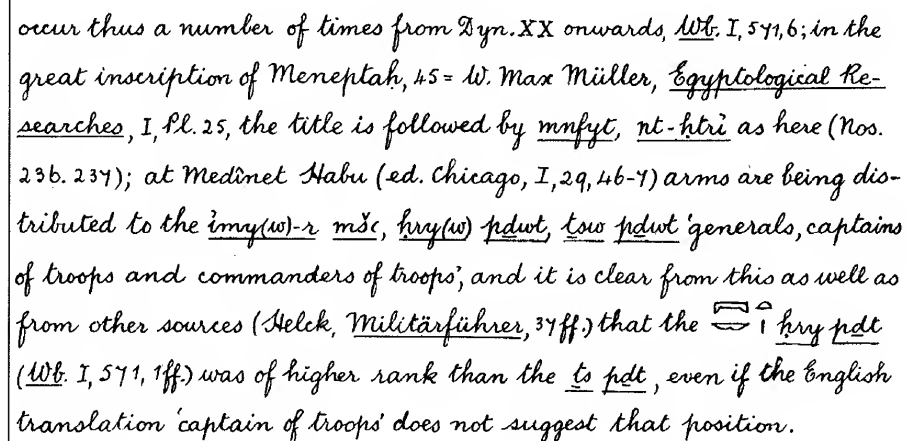 occur thus a number of times from Dyn. XX onwards, Wb. I, 571, 6; in the
great inscription of Meneptaḥ, 45 = W. Max Müller, Egyptological Re-
searches, I, Pl. 25, the title is followed by mnfyt, nt-ḥtri̓ as here (Nos.
236. 237); at Medînet Habu (ed. Chicago, I, 29, 46-7) arms are being dis-
tributed to the i̓my(w)-r mšꜥ, ḥry(w) pḏwt, ṯsw pḏwt ‘generals, captains
of troops and commanders of troops’, and it is clear from this as well as
from other sources (Helck, Militärführer, 37ff.) that the ḥry pḏt
(Wb. I, 571, 1ff.) was of higher rank than the ṯs pḏt, even if the English
translation ‘captain of troops’ does not suggest that position.